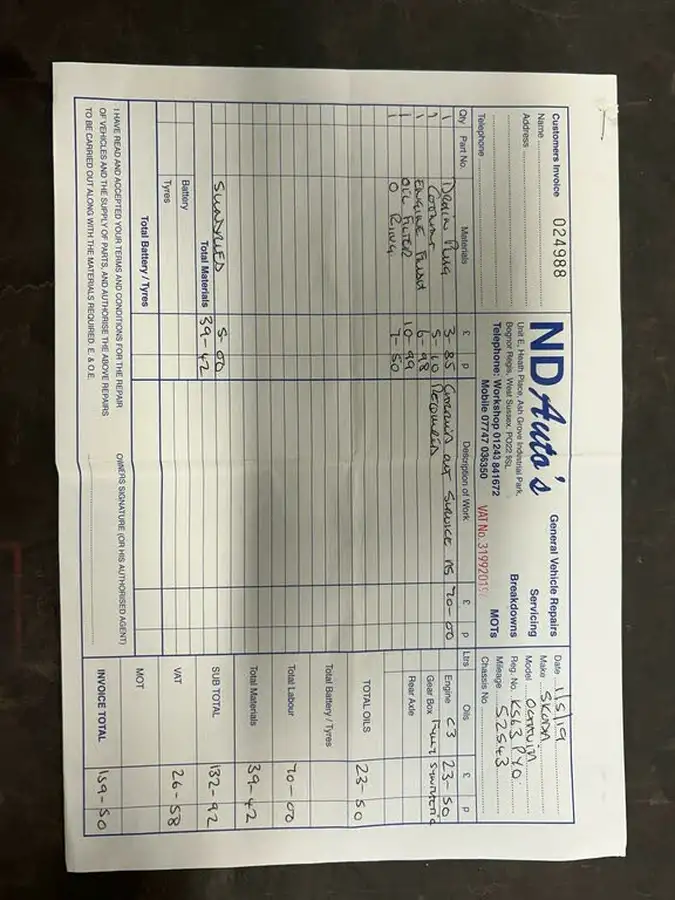 Customers Invoice 024988
Name
Address
Telephone
ND Auto's
Unit E, Heath Place, Ash Grove Industrial Park,
Bognor Regis, West Sussex. PO22 9SL
Telephone: Workshop 01243 841672
Mobile 07747 036350
VAT No. 31992015
General Vehicle Repairs
Servicing
Breakdowns
MOTs
Date 1/5/19
Make SKODA
Model OCTAVIA
Reg. No. KS63 PYO
Mileage 52543
Chassis No.
Qty Part No. Materials £ p Description of Work £ p Ltrs Oils £ p
1 DRAIN PLUG 3-85
1 5-10
1 ENGINE FLUSH 6-98
1 OIL FILTER 10-99
1 O RING 7-50
SUNDRIES 5-00
Total Materials 39-42
Battery
Tyres
Total Battery / Tyres
OUT SERVICE AS 70-00
REQUIRED
Engine C3 23-50
Gear Box FULLY SYNTHETIC
Rear Axle
TOTAL OILS 23-50
Total Battery / Tyres
Total Labour 70-00
Total Materials 39-42
SUB TOTAL 132-92
VAT 26-58
MOT
INVOICE TOTAL 159-50
I HAVE READ AND ACCEPTED YOUR TERMS AND CONDITIONS FOR THE REPAIR
OF VEHICLES AND THE SUPPLY OF PARTS, AND AUTHORISE THE ABOVE REPAIRS
TO BE CARRIED OUT ALONG WITH THE MATERIALS REQUIRED. E. & O.E.
OWNERS SIGNATURE (OR HIS AUTHORISED AGENT)